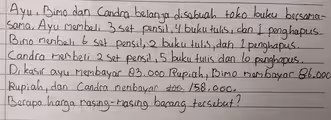 Ayu, Bimo dan Candra belanja disebuah toko buku bersama-
sama. Ayu membeli 3 set pensil, 4 buku tulis, dan 1 penghapus.
Bimo membeli 6 set pensil, 2 buku tulis, dan 1 penghapus.
Candra membeli 2 set pensil, 5 buku tulis dan 10 penghapus.
Di kasir ayu membayar 83.000 Rupiah, Bimo membayar 86.000
Rupiah, dan Candra membayar 158.000.
Berapa harga masing-masing barang tersebut?